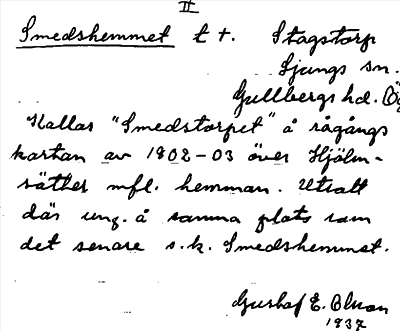 II
Smedshemmet t t. Stagstorp
Ljungs sn.
Gullbergs hd. Ög
Kallas "Smedstorpet" å rågångs
kartan av 1802-03 över Hjälm-
sätter mfl. hemman. Utsatt
där ung. å samma plats som
det senare s.k. Smedshemmet.
Gustaf E. Olsson
1937